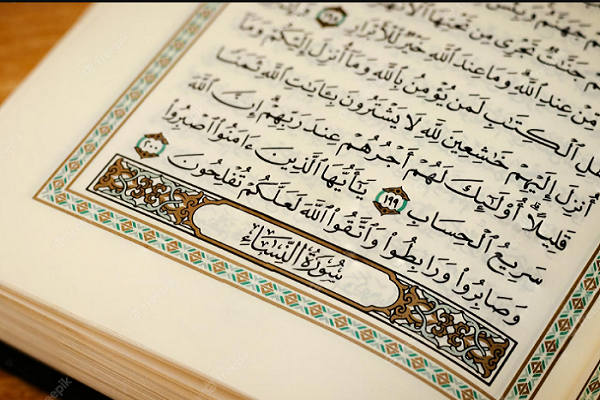 جَهَنَّمُ وَبِئْسَ
جَنَّٰتٌ تَجْرِى مِن تَحْتِهَا
مِّنْ عِندِ ٱللَّهِ وَمَا عِندَ ٱللَّهِ خَيْرٌ لِّلْأَبْرَارِ ١٩٨
ٱلْكِتَٰبِ لَمَن يُؤْمِنُ بِٱللَّهِ وَمَآ أُنزِلَ إِلَيْكُمْ وَمَآ
أُنزِلَ إِلَيْهِمْ خَٰشِعِينَ لِلَّهِ لَا يَشْتَرُونَ بِـَٔايَٰتِ ٱللَّهِ ثَمَنًا
قَلِيلًا أُو۟لَٰٓئِكَ لَهُمْ أَجْرُهُمْ عِندَ رَبِّهِمْ إِنَّ ٱللَّهَ
سَرِيعُ ٱلْحِسَابِ ١٩٩ يَٰٓأَيُّهَا ٱلَّذِينَ ءَامَنُوا۟ ٱصْبِرُوا۟
وَصَابِرُوا۟ وَرَابِطُوا۟ وَٱتَّقُوا۟ ٱللَّهَ لَعَلَّكُمْ تُفْلِحُونَ ٢٠٠
سُورَةُ ٱلنِّسَاءِ